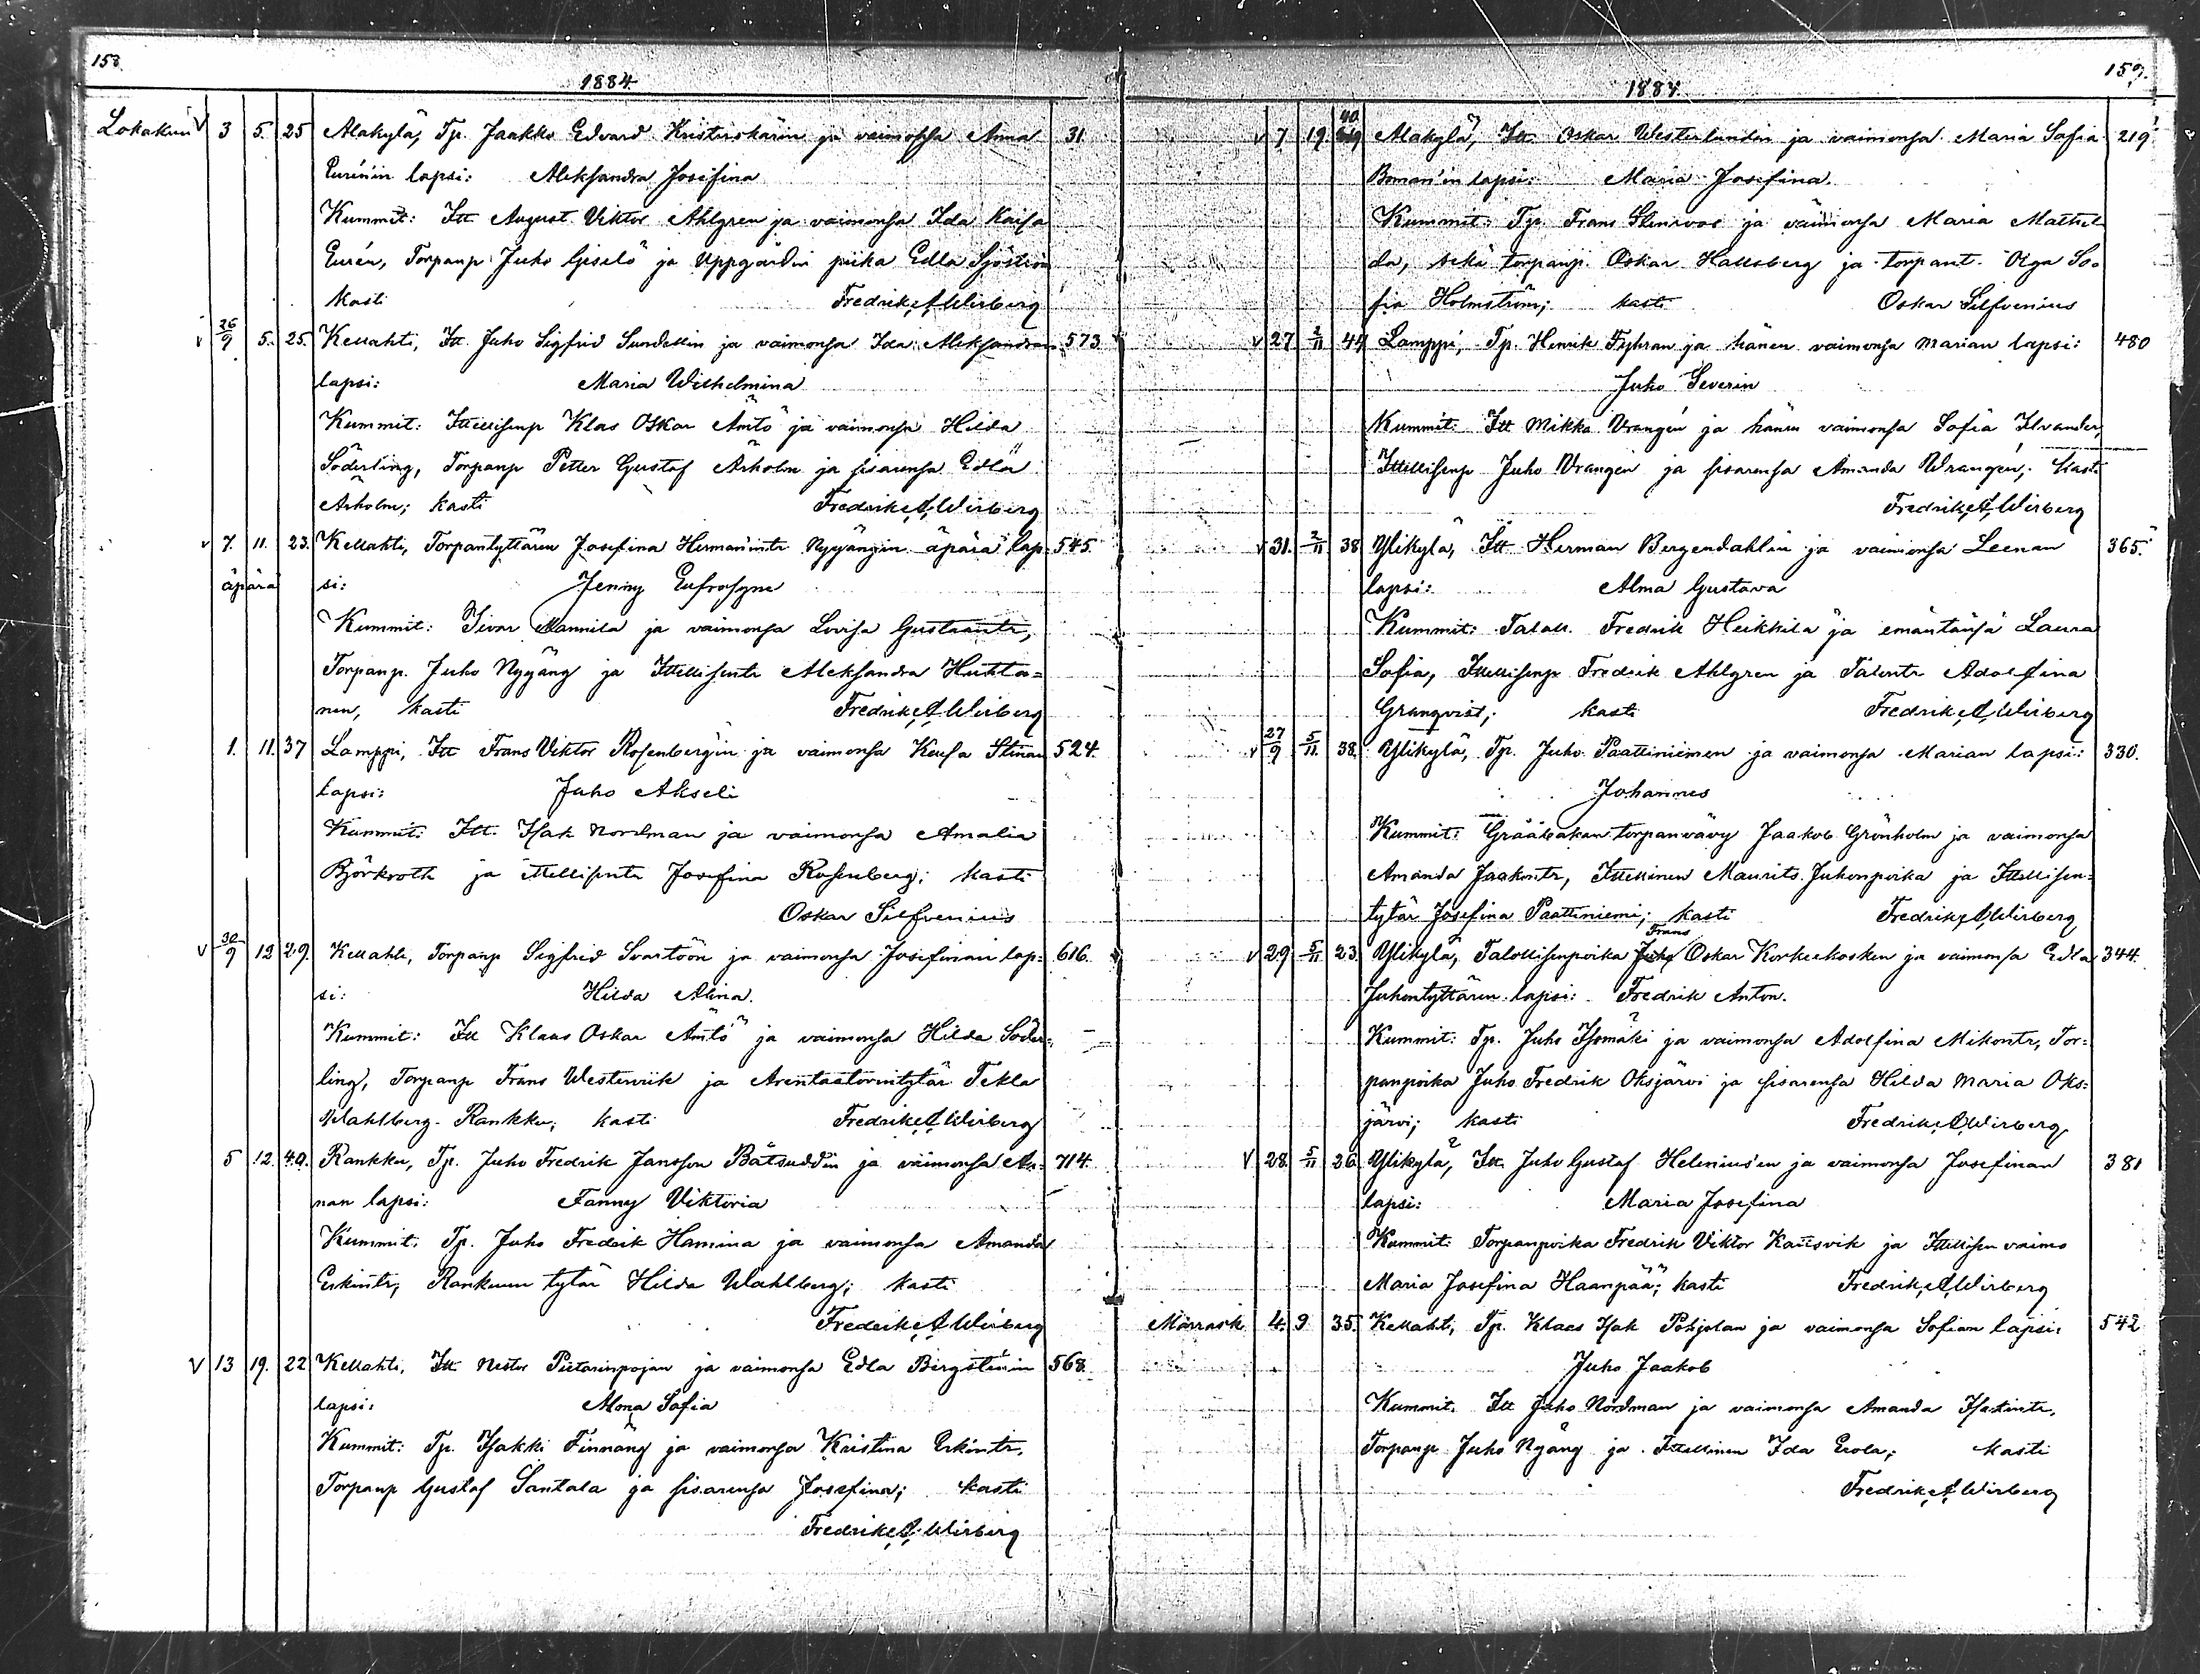 158.
1884
Lokakuu V 3 5. 25 Alakylä, Tp. Jaakko Edvard Kristerskärin ja vaimonsa Anna 31.
Eurénin lapsi: Aleksandra Josefina
Kummit: Itt August Viktor Ahlgren ja vaimonsa Ida Kaisa
Eurén, Torpanp Juho Giselö ja Uppgårdin piika Edla Sjöström
kasti Fredrik A Wirberg
v 26/9 5. 25. Kellahti, Itt. Juho Sigfrid Sundellin ja vaimonsa Ida Aleksandran 573
lapsi: Maria Wilhelmina
Kummit: Ittellisenp Klas Oskar Ämtö ja vaimonsa Hilda
Söderling, Torpanp Petter Gustaf Årholm ja sisarensa Edla
Årholm; kasti Fredrik A Wirberg
v 7. 11. 23. Kellahti, Torpantyttären Josefina Herman'intr Nygångin äpärä lap- 545.
äpärä si: Jenny Eufrosyne
Kummit: Iivar Mannila ja vaimonsa Lovisa Gustaantr,
Torpanp. Juho Nygång ja Ittellisentr Aleksandra Huhta=
nen, kasti Fredrik A Wirberg
1. 11. 37 Lamppi, Itt Frans Viktor Rosenberg'in ja vaimonsa Kaisa Stinan 524.
lapsi: Juho Akseli
Kummit: Itt. Isak Nordman ja vaimonsa Amalia
Björkroth ja ittellisentr Josefina Rosenberg; kasti
Oskar Silfvenius
V 30/9 12 29. Kellahti, Torpanp Sigfrid Svartöön ja vaimonsa Josefinan lap= 616.
si: Hilda Alina.
Kummit: Itt Klaas Oskar Ämtö ja vaimonsa Hilda Söder=
ling, Torpanp Frans Westervik ja Arentaatorintytär Tekla
Wahlberg Rankku, kasti Fredrik A Wirberg
5 12. 40. Rankku, Tp. Juho Fredrik Jansson Båtsuddin ja vaimonsa An- 714.
nan lapsi: Fanny Viktoria
Kummit. Tp. Juho Fredrik Hamina ja vaimonsa Amanda
Erkintr, Rankuun tytär Hilda Wahlberg; kasti
Fredrik A Wirberg
V 13 19. 22 Kellahti, Itt. Nestor Pietarinpojan ja vaimonsa Edla Bergsténin 568.
lapsi: Alma Sofia
Kummit: Tp. Isakki Finnäng ja vaimonsa Kristina Erkintr,
Torpanp Gustaf Santala ja sisarensa Josefina; kasti
Fredrik A. Wirberg
159.
1884.
v 7 19. 40 Alakylä, Itt. Oskar Westerlundin ja vaimonsa Maria Sofia 219
Boman'in lapsi: Maria Josefina.
Kummit: Tp. Frans Stenroos ja vaimonsa Maria Mathil
da, sekä torpanp. Oskar Hallsberg ja torpant. Olga So=
fia Holmström; kasti Oskar Silfvenius
v 27 2/11 44 Lamppi, Tp. Henrik Fyhran ja hänen vaimonsa Marian lapsi: 480
Juho Severin
Kummit: Itt Mikka Vrangén ja hänen vaimonsa Sofia Ilvander,
Ittellisenp Juho Vrangén ja sisarensa Amanda Wrangén; kasti
Fredrik A Wirberg
v 31. 2/11 38 Ylikylä, Itt Herman Bergendahlin ja vaimonsa Leenan 365.
lapsi: Alma Gustava
Kummit: Talol. Fredrik Heikkilä ja emäntänsä Laura
Sofia, Ittellisenp Fredrik Ahlgren ja Talontr Adolfina
Granqvist; kasti Fredrik A Wirberg
v 27/9 5/11 38. Ylikylä, Tp. Juho Paattiniemen ja vaimonsa Marian lapsi: 330.
Johannes
Kummit: Gråäbakan torpanvävy Jaakob Grönholm ja vaimonsa
Amanda Jaakontr, Ittellinen Maurits Juhonpoika ja Ittellisen=
tytär Josefina Paattiniemi; kasti Fredrik A Wirberg
Frans
v 29 5/11 23. Ylikylä, Talollisenpoika Juho Oskar Korkeekosken ja vaimonsa Edla 344.
Juhontyttären lapsi: Fredrik Anton.
Kummit: Tp. Juho Isomäki ja vaimonsa Adolfina Mikontr, Tor=
panpoika Juho Fredrik Oksjärvi ja sisarensa Hilda Maria Oks=
järvi; kasti Fredrik A Wirberg.
V 28. 5/11 26 Ylikylä, Itt. Juho Gustaf Helenius'en ja vaimonsa Josefinan 381
lapsi: Maria Josefina
Kummit: Torpanpoika Fredrik Viktor Kansvik ja Ittellisen vaimo
Maria Josefina Haanpää; kasti Fredrik A Wirberg
Marrask 4. 9 35. Kellahti, Tp. Klaes Isak Pohjolan ja vaimonsa Sofian lapsi: 542
Juho Jaakob
Kummit. Itt Juho Nordman ja vaimonsa Amanda Isakintr,
Torpanp Juho Nygång ja Ittellinen Ida Erola; kasti
Fredrik A Wirberg